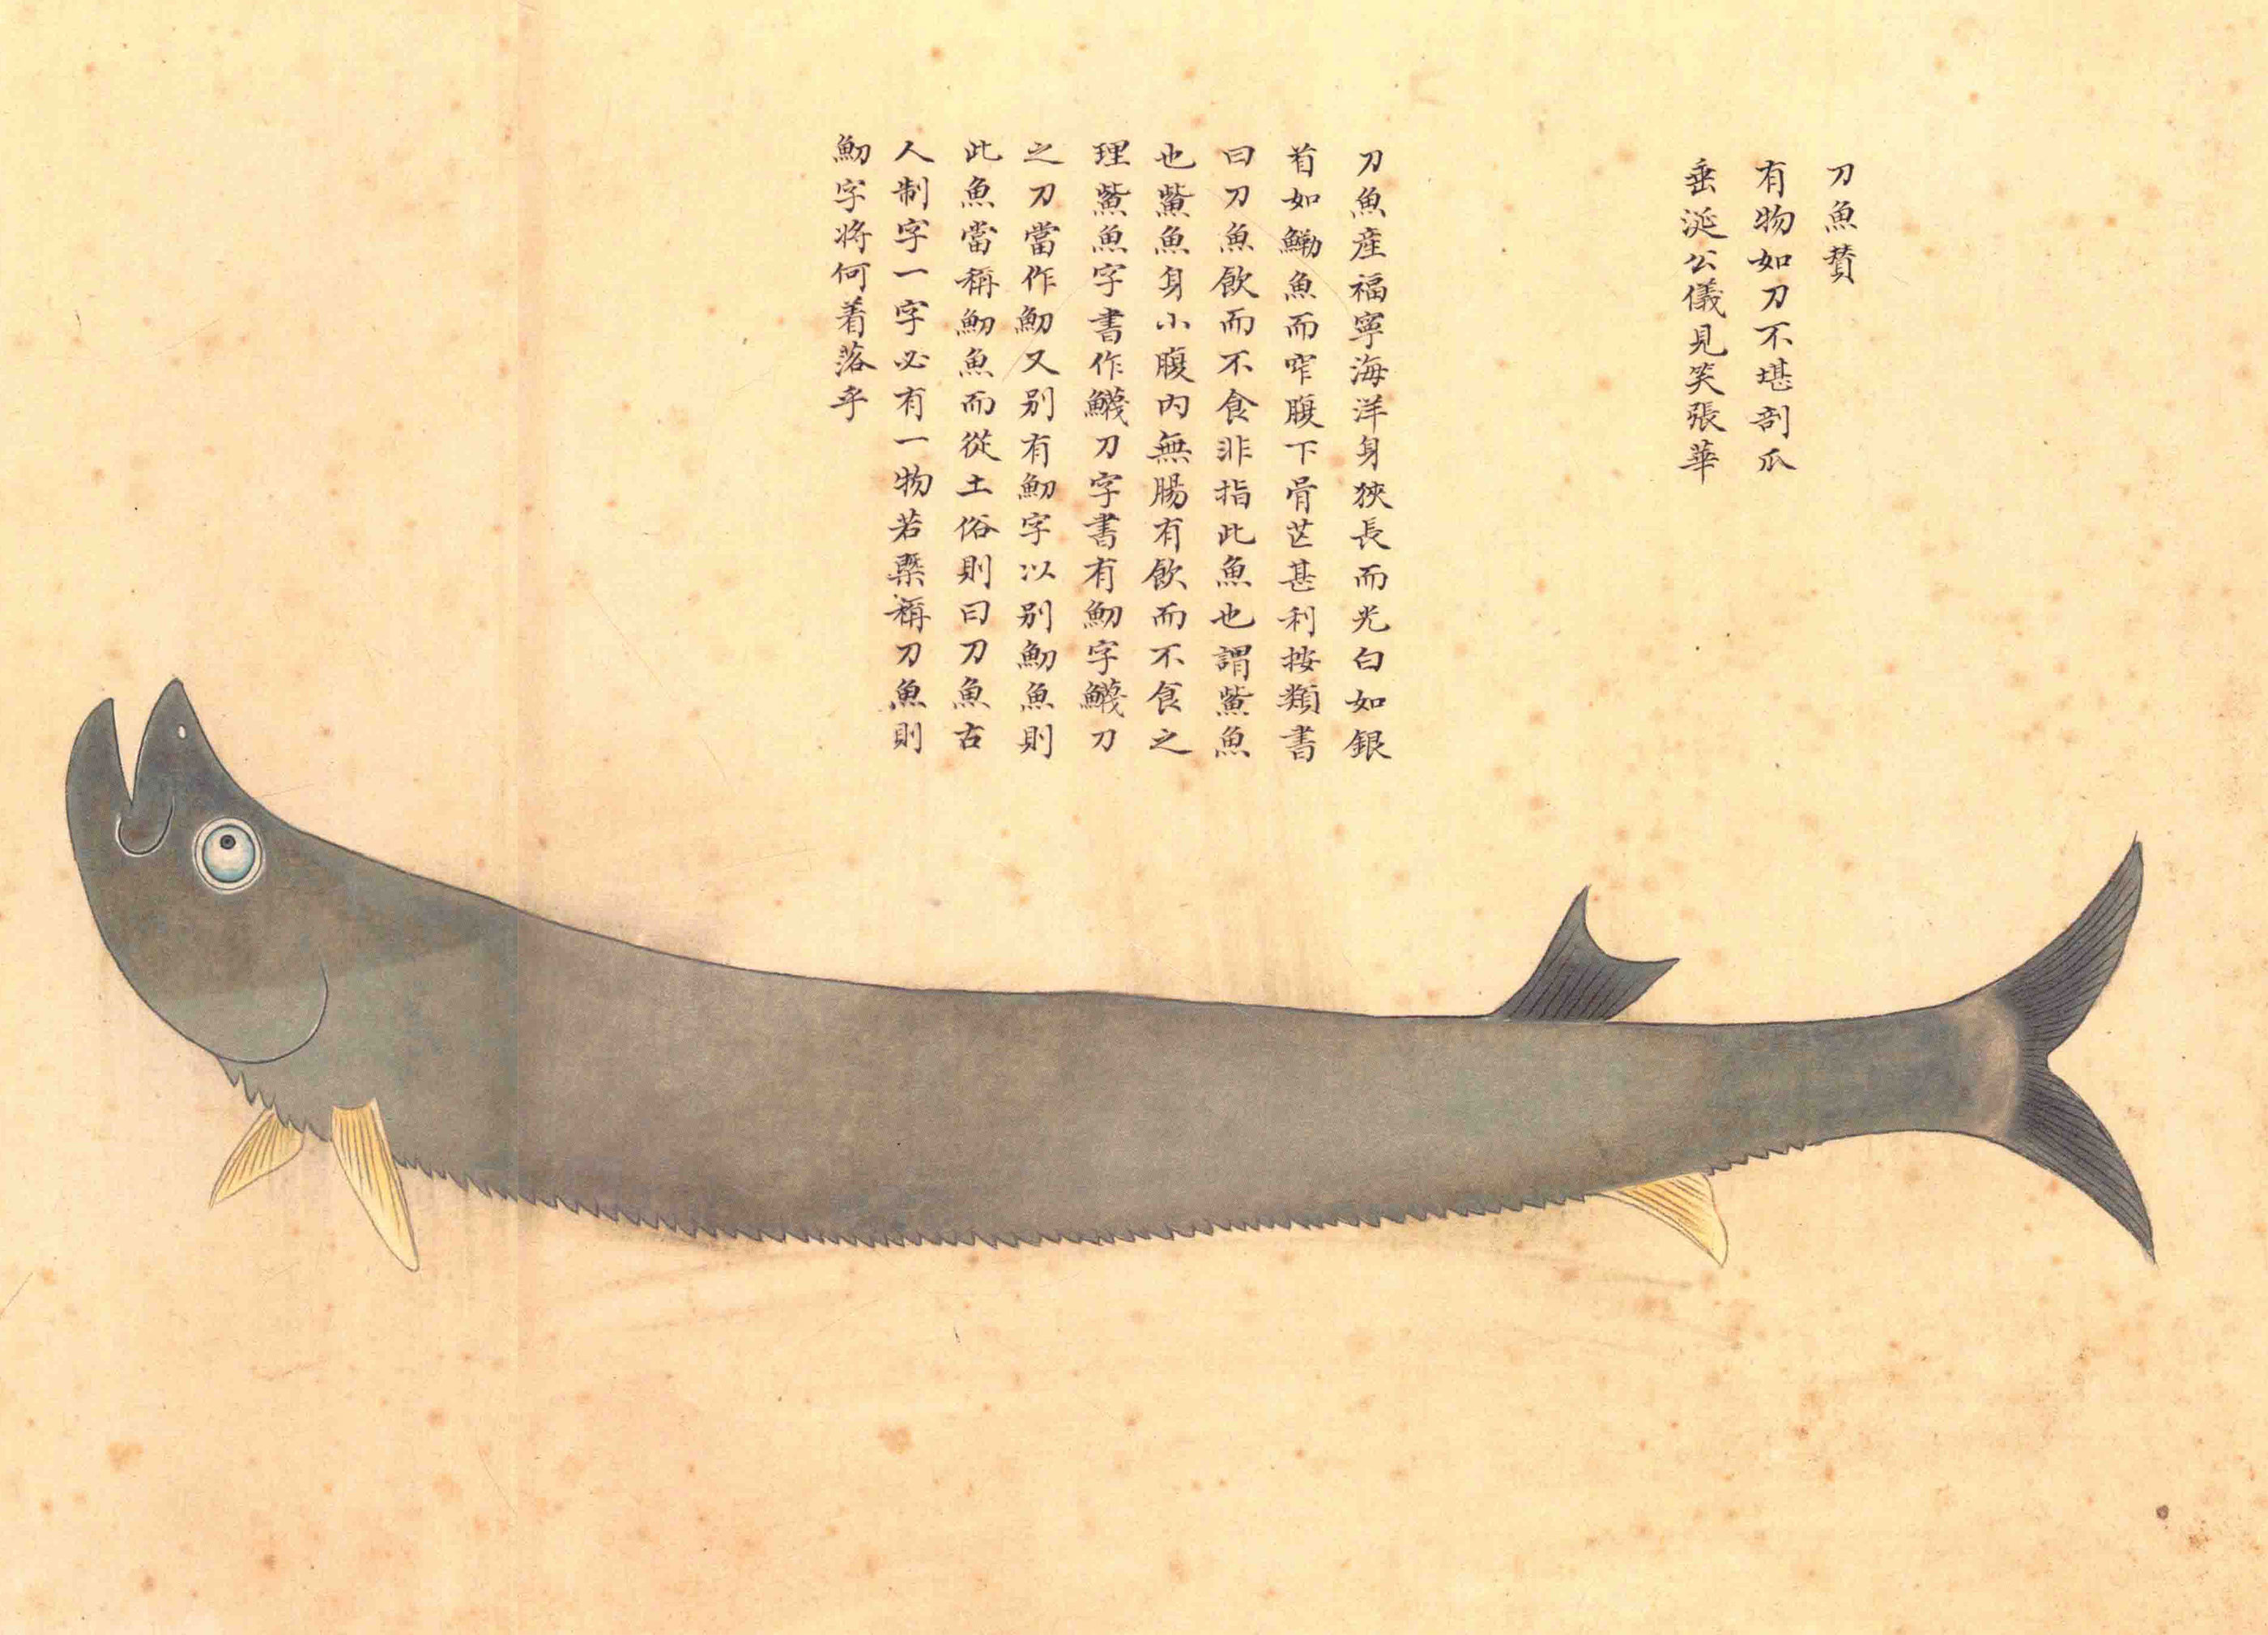 刀魚賛
有物如刀不堪剖瓜
垂涎公儀見笑張華
刀魚産福寧海洋身狹長而光白如銀
首如鰳魚而窄腹下骨芒甚利按類書
曰刀魚飲而不食非指此魚也謂鮆魚
也鮆魚身小腹内無腸有飲而不食之
理鮆魚字書作鱴刀字書有魛字鱴刀
之刀當作魛又别有魛字以别魛魚則
此魚當稱魛魚而從土俗則曰刀魚古
人制字一字必有一物若槩稱刀魚則
魛字将何着落乎